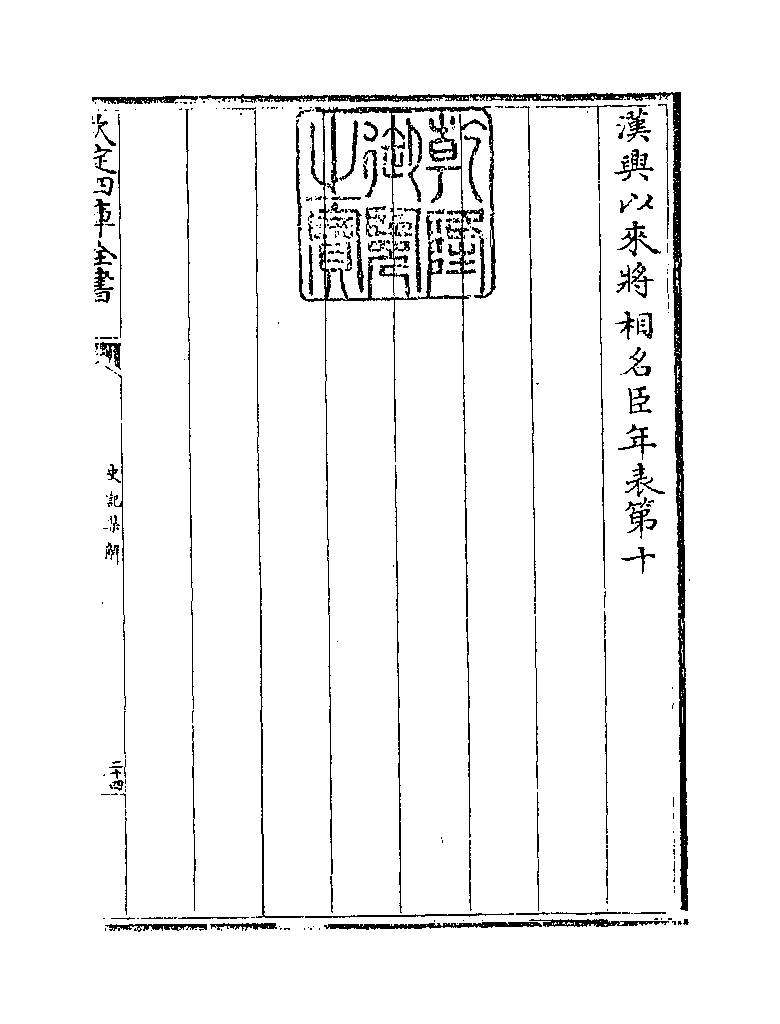 漢興以來將相名臣年表第十
乾隆御覽之寶
欽定四庫全書
史記集解
二十四